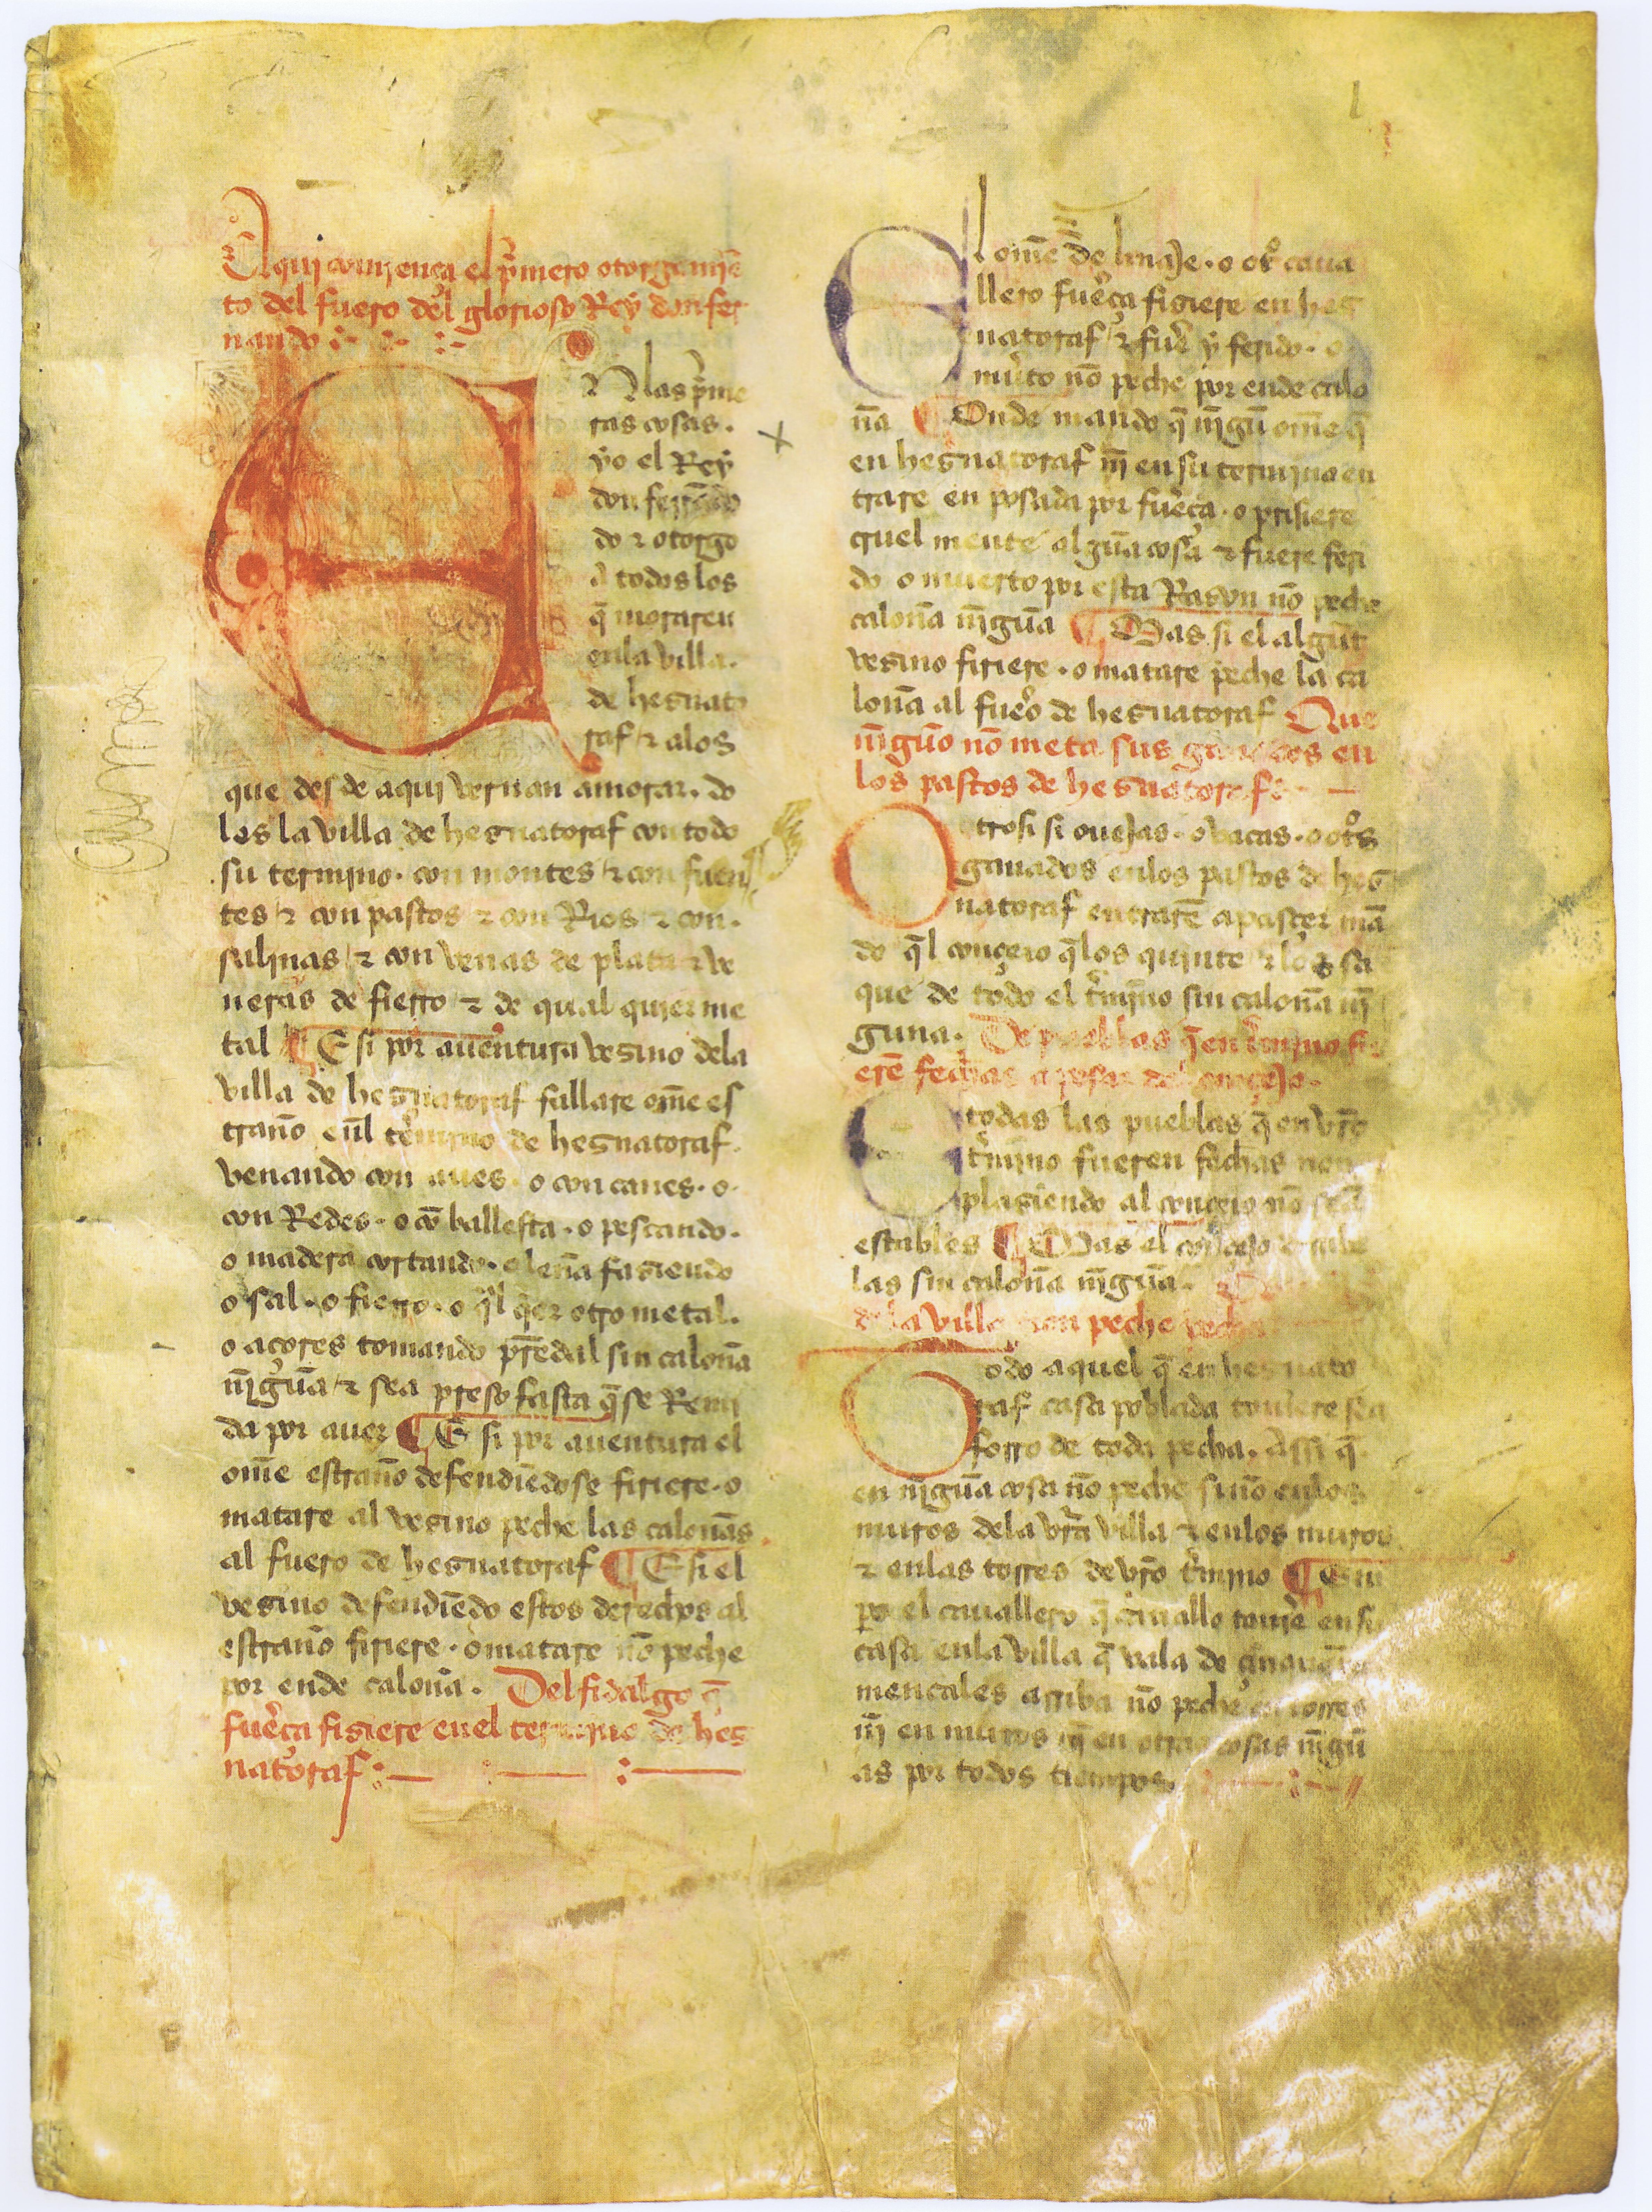 Aqui comiença el pͥmero otorgamiē
to del fuero del glorioso Rey don fer
nando
EN las pͥme
ras cosas.
yo el Rey
don ferrādo
do ⁊ otorgo
a todos los
q̄ moraren
enla villa.
de hesnato
raf ⁊ alos
que des de aqui vernan amorar. do
les la villa de hesnatoraf con todo
su termino. con montes ⁊ con fuen
tes ⁊ con pastos ⁊ con Rios ⁊ con.
salinas ⁊ con venas de plata ⁊ ve
neras de fierro ⁊ de qual quier me
tal ¶ E si por auentura vesino dela
villa de hesnatoraf fallare om̄e es
traño enl termino de hesnatoraf.
venando con aues. o con canes. o.
con Redes. o cō ballesta. o pescando.
o madera cortando. o leña fasiendo
o sal. o fierro. o q̄l q̄er otro metal.
o açores tomando prēdal sin caloña
nīguna ⁊ sea preso fasta q̄ se Remi
da por auer ¶ E si por auentura el
om̄e estraño defendiēdose firiere. o
matare al vesino peche las caloñas
al fuero de hesnatoraf ¶ E si el
vesino defendiēdo estos derechos al
estraño firiere. o matare nō peche
por ende caloña. Del fidalgo q̄
fuerça fisiere enel termino de hes
natoraf
El om̄e de linaje. o otͦ caua
llero fuerça fisiere en hes
natoraf ⁊ fuer̄ y ferido. o
muto nō peche por ende calo
ña ¶ Onde mando q̄ nīgū om̄e q̄
en hesnatoraf nī en su termino en
trare en posada por fuerça. o prisiere
cruel mente alguna cosa ⁊ fuere feri
do o muerto por esta Rason nō peche
caloña nīguna ¶ Mas si el algūt
vesino firiere. o matare peche la ca
loña al fuero de hesnatoraf Que
nīguno nō meta sus ganados en
los pastos de hesnatoraf
Otrosi si ouejas. o vacas. o otͦs
ganados enlos pastos de hes
natoraf entrarē apaster man
do q̄l conçejo q̄los quinte ⁊ los sa
que de todo el tͬmino sin caloña nī
guna. De pueblas q̄ en tͬmino fu
erē fechas a pesar del conçejo.
E todas las pueblas q̄ en vr̄o
tͬmino fueren fechas non
plasiendo al conçejo nō seā
estables ¶ Mas el conçejo
las sin caloña nīguna.
dela villa non peche pecha
Todo aquel q̄ en hesnato
raf casa poblada touiere sea
forro de toda pecha. Assi q̄
en nīguna cosa nō peche sinō enlos
muros dela vr̄a villa ⁊ enlos muros
⁊ enlas torres de vr̄o tͬmino ¶ Em
pero el cauallero q̄ cauallo touier̄ en su
casa enla villa q̄ vala de
mencales arriba nō peche en torres
nī en muros nī en otras cosas nīgū
as por todos tiempos.